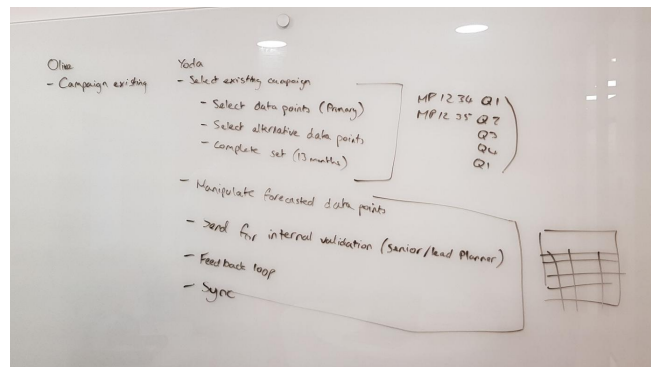 Olive
- Campaign existing
Yoda
- Select existing campaign
- Select data points (Primary)
- Select alternative data points
- Complete set (13 months)
- Manipulate forecasted data points
- Send for internal validation (senior/lead planner)
- Feedback loop
- Sync
MP 1234 Q1
MP 1235 Q2
Q3
Q4
Q1